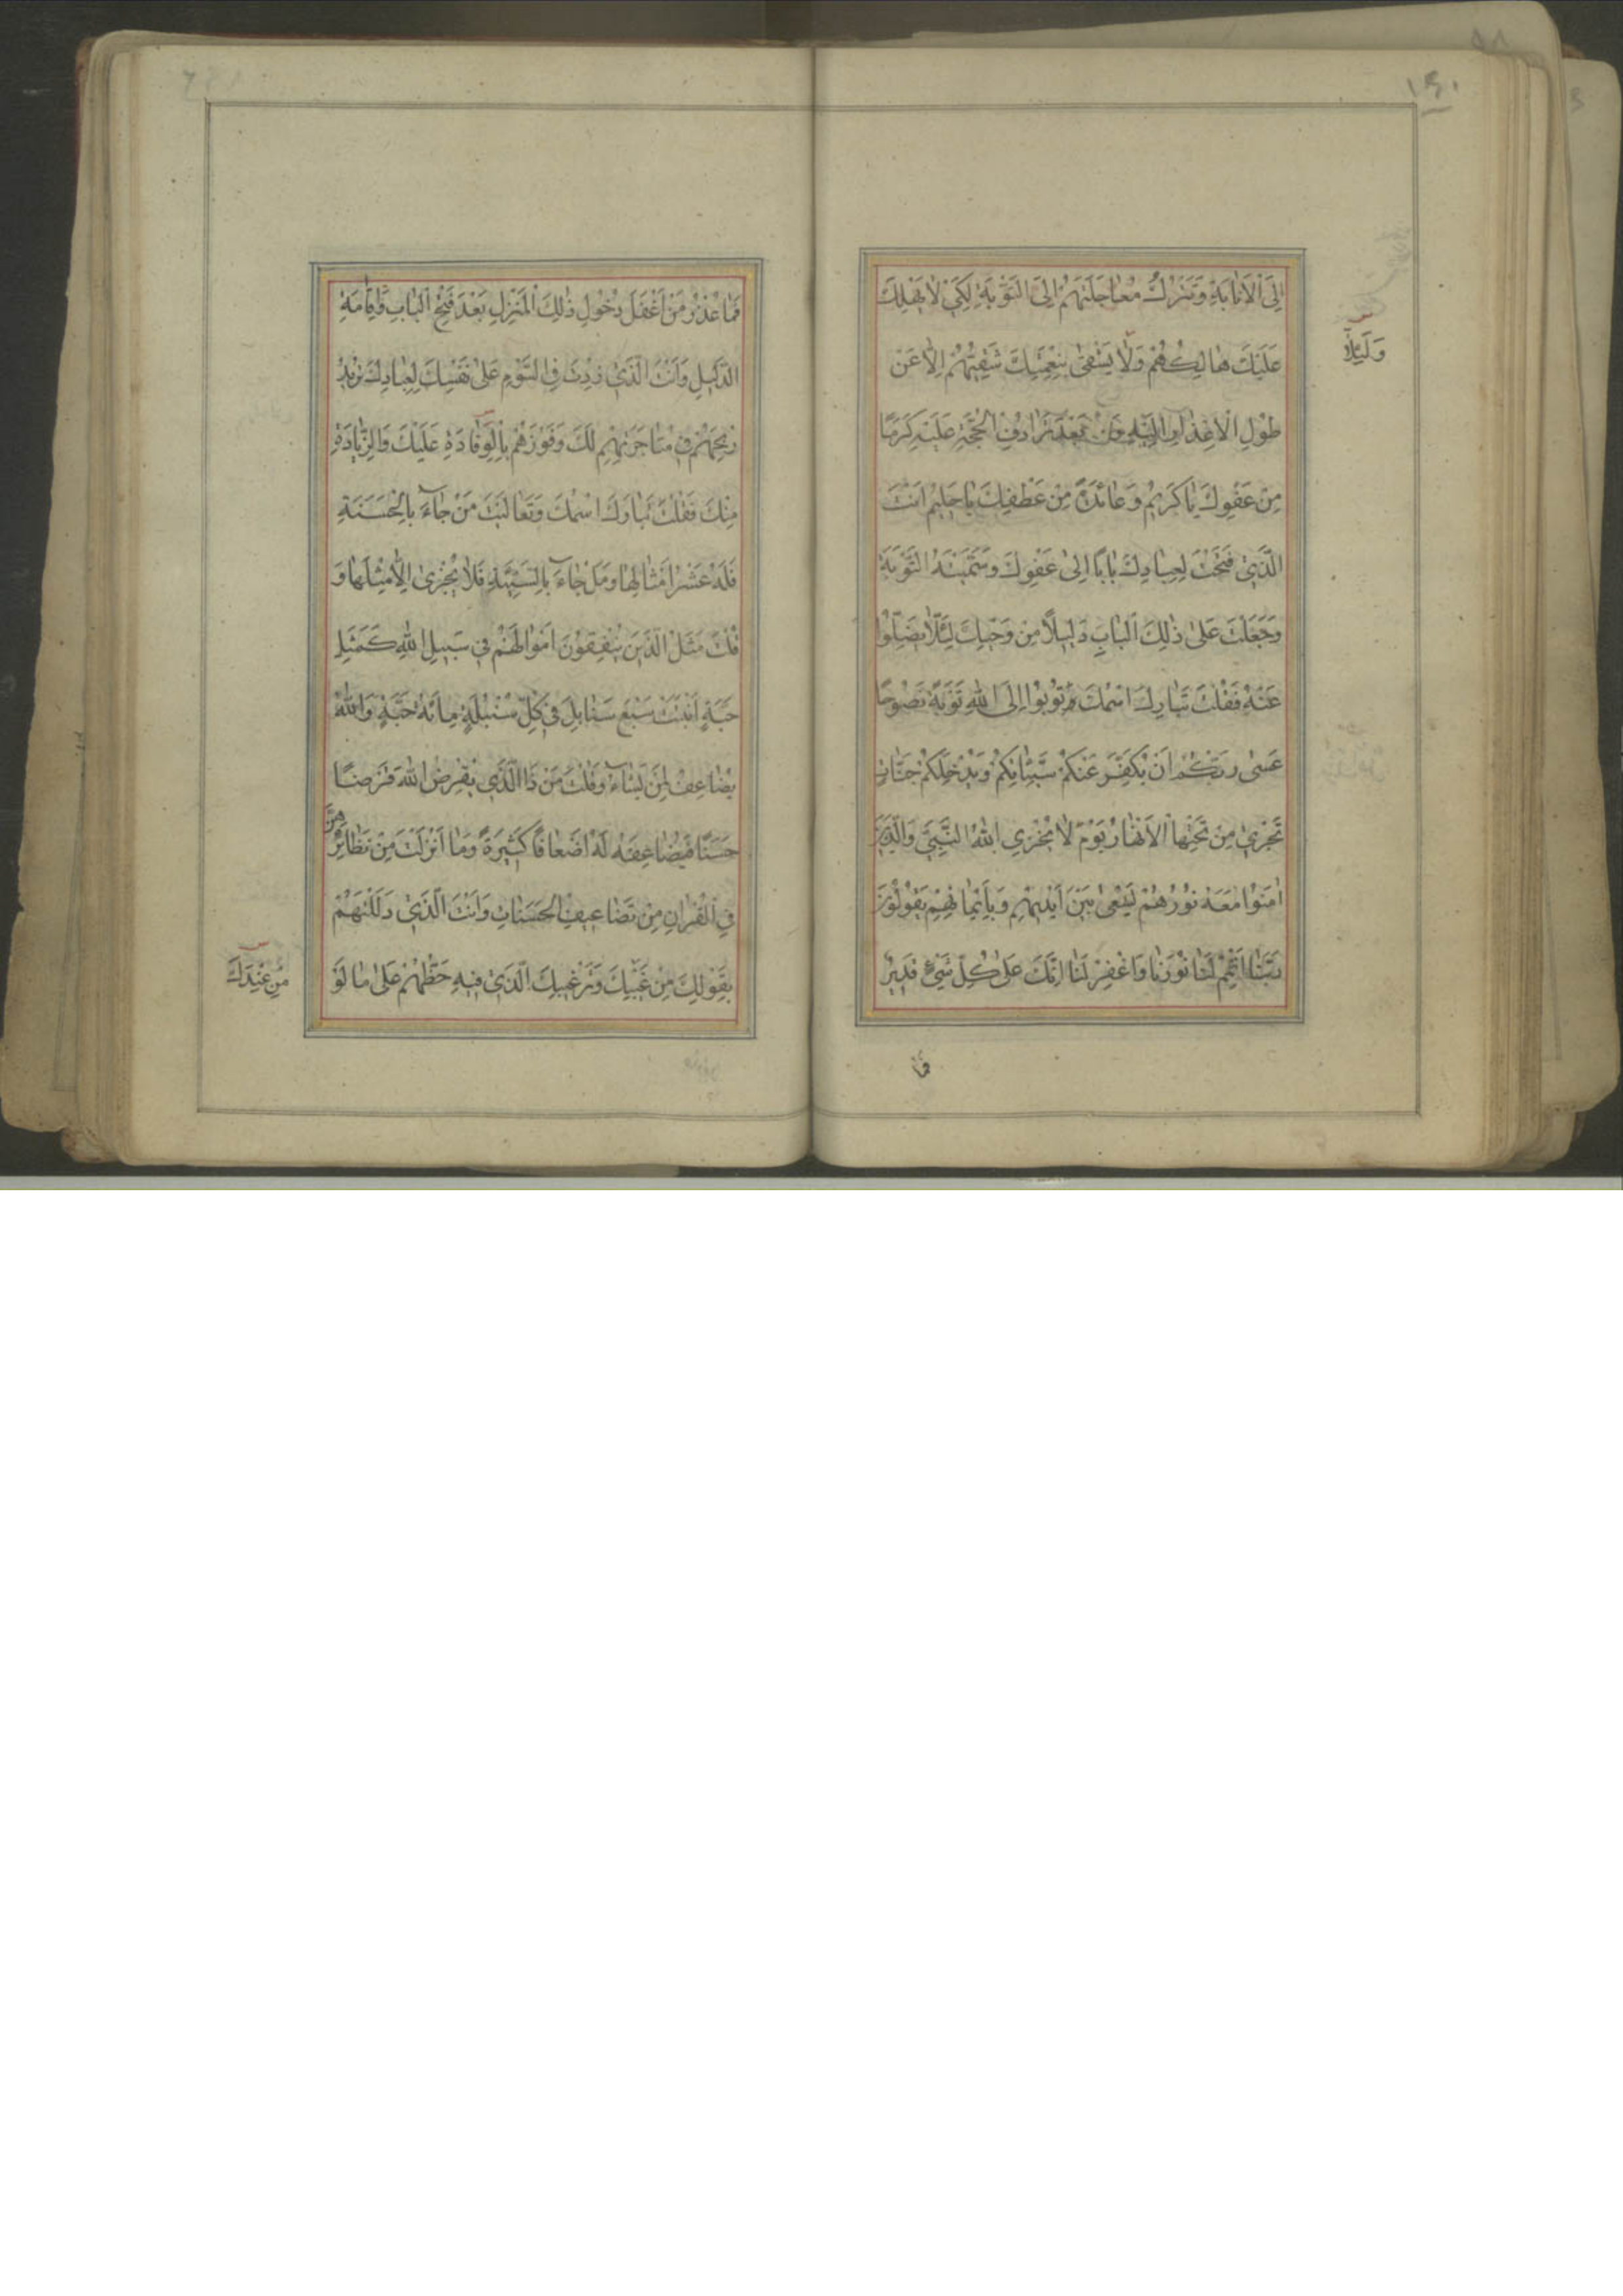 ١٤٠
اِلَى الْاَنابَةِ وَتَتْرُكُ مُعاجَلَتَهُمْ اِلَى التَّوْبَةِ لِكَيْ لٰا يَهْلِكَ
عَلَيْكَ هالِكُهُمْ وَلٰا يَشْقىٰ بِنِعْمَتِكَ شَقِيُّهُمْ اِلّٰا عَنْ
وَلِئَلّٰا
طُولِ الْاِعْذارِ اِلَيْهِ وَ بَعْدَ تَرادُفِ الْحُجَّةِ عَلَيْهِ كَرَمًا
مِنْ عَفْوِكَ يٰا كَرِيمُ وَعٰائِدَةً مِنْ عَطْفِكَ يٰا حَلِيمُ اَنْتَ
الَّذِي فَتَحْتَ لِعِبادِكَ بٰابًا اِلىٰ عَفْوِكَ وَسَمَّيْتَهُ التَّوْبَةَ
وَجَعَلْتَ عَلىٰ ذٰلِكَ الْبٰابِ دَلِيلًا مِنْ وَحْيِكَ لِئَلّٰا يَضِلُّوا
عَنْهُ فَقُلْتَ تَبارَكَ اسْمُكَ تُوبُوا اِلَى اللّٰهِ تَوْبَةً نَصُوحًا
عَسىٰ رَبُّكُمْ اَنْ يُكَفِّرَ عَنْكُمْ سَيِّئٰاتِكُمْ وَيُدْخِلَكُمْ جَنّٰاتٍ
تَجْرِي مِنْ تَحْتِهَا الْاَنْهٰارُ يَوْمَ لٰا يُخْزِي اللّٰهُ النَّبِيَّ وَالَّذِينَ
اٰمَنُوا مَعَهُ نُورُهُمْ يَسْعىٰ بَيْنَ اَيْدِيهِمْ وَبِاَيْمٰانِهِمْ يَقُولُونَ
رَبَّنٰا اَتْمِمْ لَنٰا نُورَنٰا وَاغْفِرْ لَنٰا اِنَّكَ عَلىٰ كُلِّ شَيْءٍ قَدِيرٌ
فما
فَمٰا عُذْرُ مَنْ اَغْفَلَ دُخُولَ ذٰلِكَ الْمَنْزِلِ بَعْدَ فَتْحِ الْبٰابِ وَاِقٰامَةِ
الدَّلِيلِ وَاَنْتَ الَّذِي زِدْتَ فِي السَّوْمِ عَلىٰ نَفْسِكَ لِعِبادِكَ تُرِيدُ
رِبْحَهُمْ فِي مُتٰاجَرَتِهِمْ لَكَ وَفَوْزَهُمْ بِالْوِفٰادَةِ عَلَيْكَ وَالزِّيٰادَةِ
مِنْكَ فَقُلْتَ تَبٰارَكَ اسْمُكَ وَتَعٰالَيْتَ مَنْ جٰاءَ بِالْحَسَنَةِ
فَلَهُ عَشْرُ اَمْثٰالِهٰا وَمَنْ جٰاءَ بِالسَّيِّئَةِ فَلٰا يُجْزىٰ اِلّٰا مِثْلَهٰا وَ
قُلْتَ مَثَلُ الَّذِينَ يُنْفِقُونَ اَمْوٰالَهُمْ فِي سَبِيلِ اللّٰهِ كَمَثَلِ
حَبَّةٍ اَنْبَتَتْ سَبْعَ سَنٰابِلَ فِي كُلِّ سُنْبُلَةٍ مِائَةُ حَبَّةٍ وَاللّٰهُ
يُضٰاعِفُ لِمَنْ يَشٰاءُ وَقُلْتَ مَنْ ذَا الَّذِي يُقْرِضُ اللّٰهَ قَرْضًا
حَسَنًا فَيُضٰاعِفَهُ لَهُ اَضْعٰافًا كَثِيرَةً وَمٰا اَنْزَلْتَ مِنْ نَظٰائِرِهِنَّ
فِي الْقُرْاٰنِ مِنْ تَضٰاعِيفِ الْحَسَنٰاتِ وَاَنْتَ الَّذِي دَلَلْتَهُمْ
بِقَوْلِكَ مِنْ غَيْبِكَ وَتَرْغِيبِكَ الَّذِي فِيهِ حَظُّهُمْ عَلىٰ مٰا لَوْ
مِنْ عِنْدِكَ